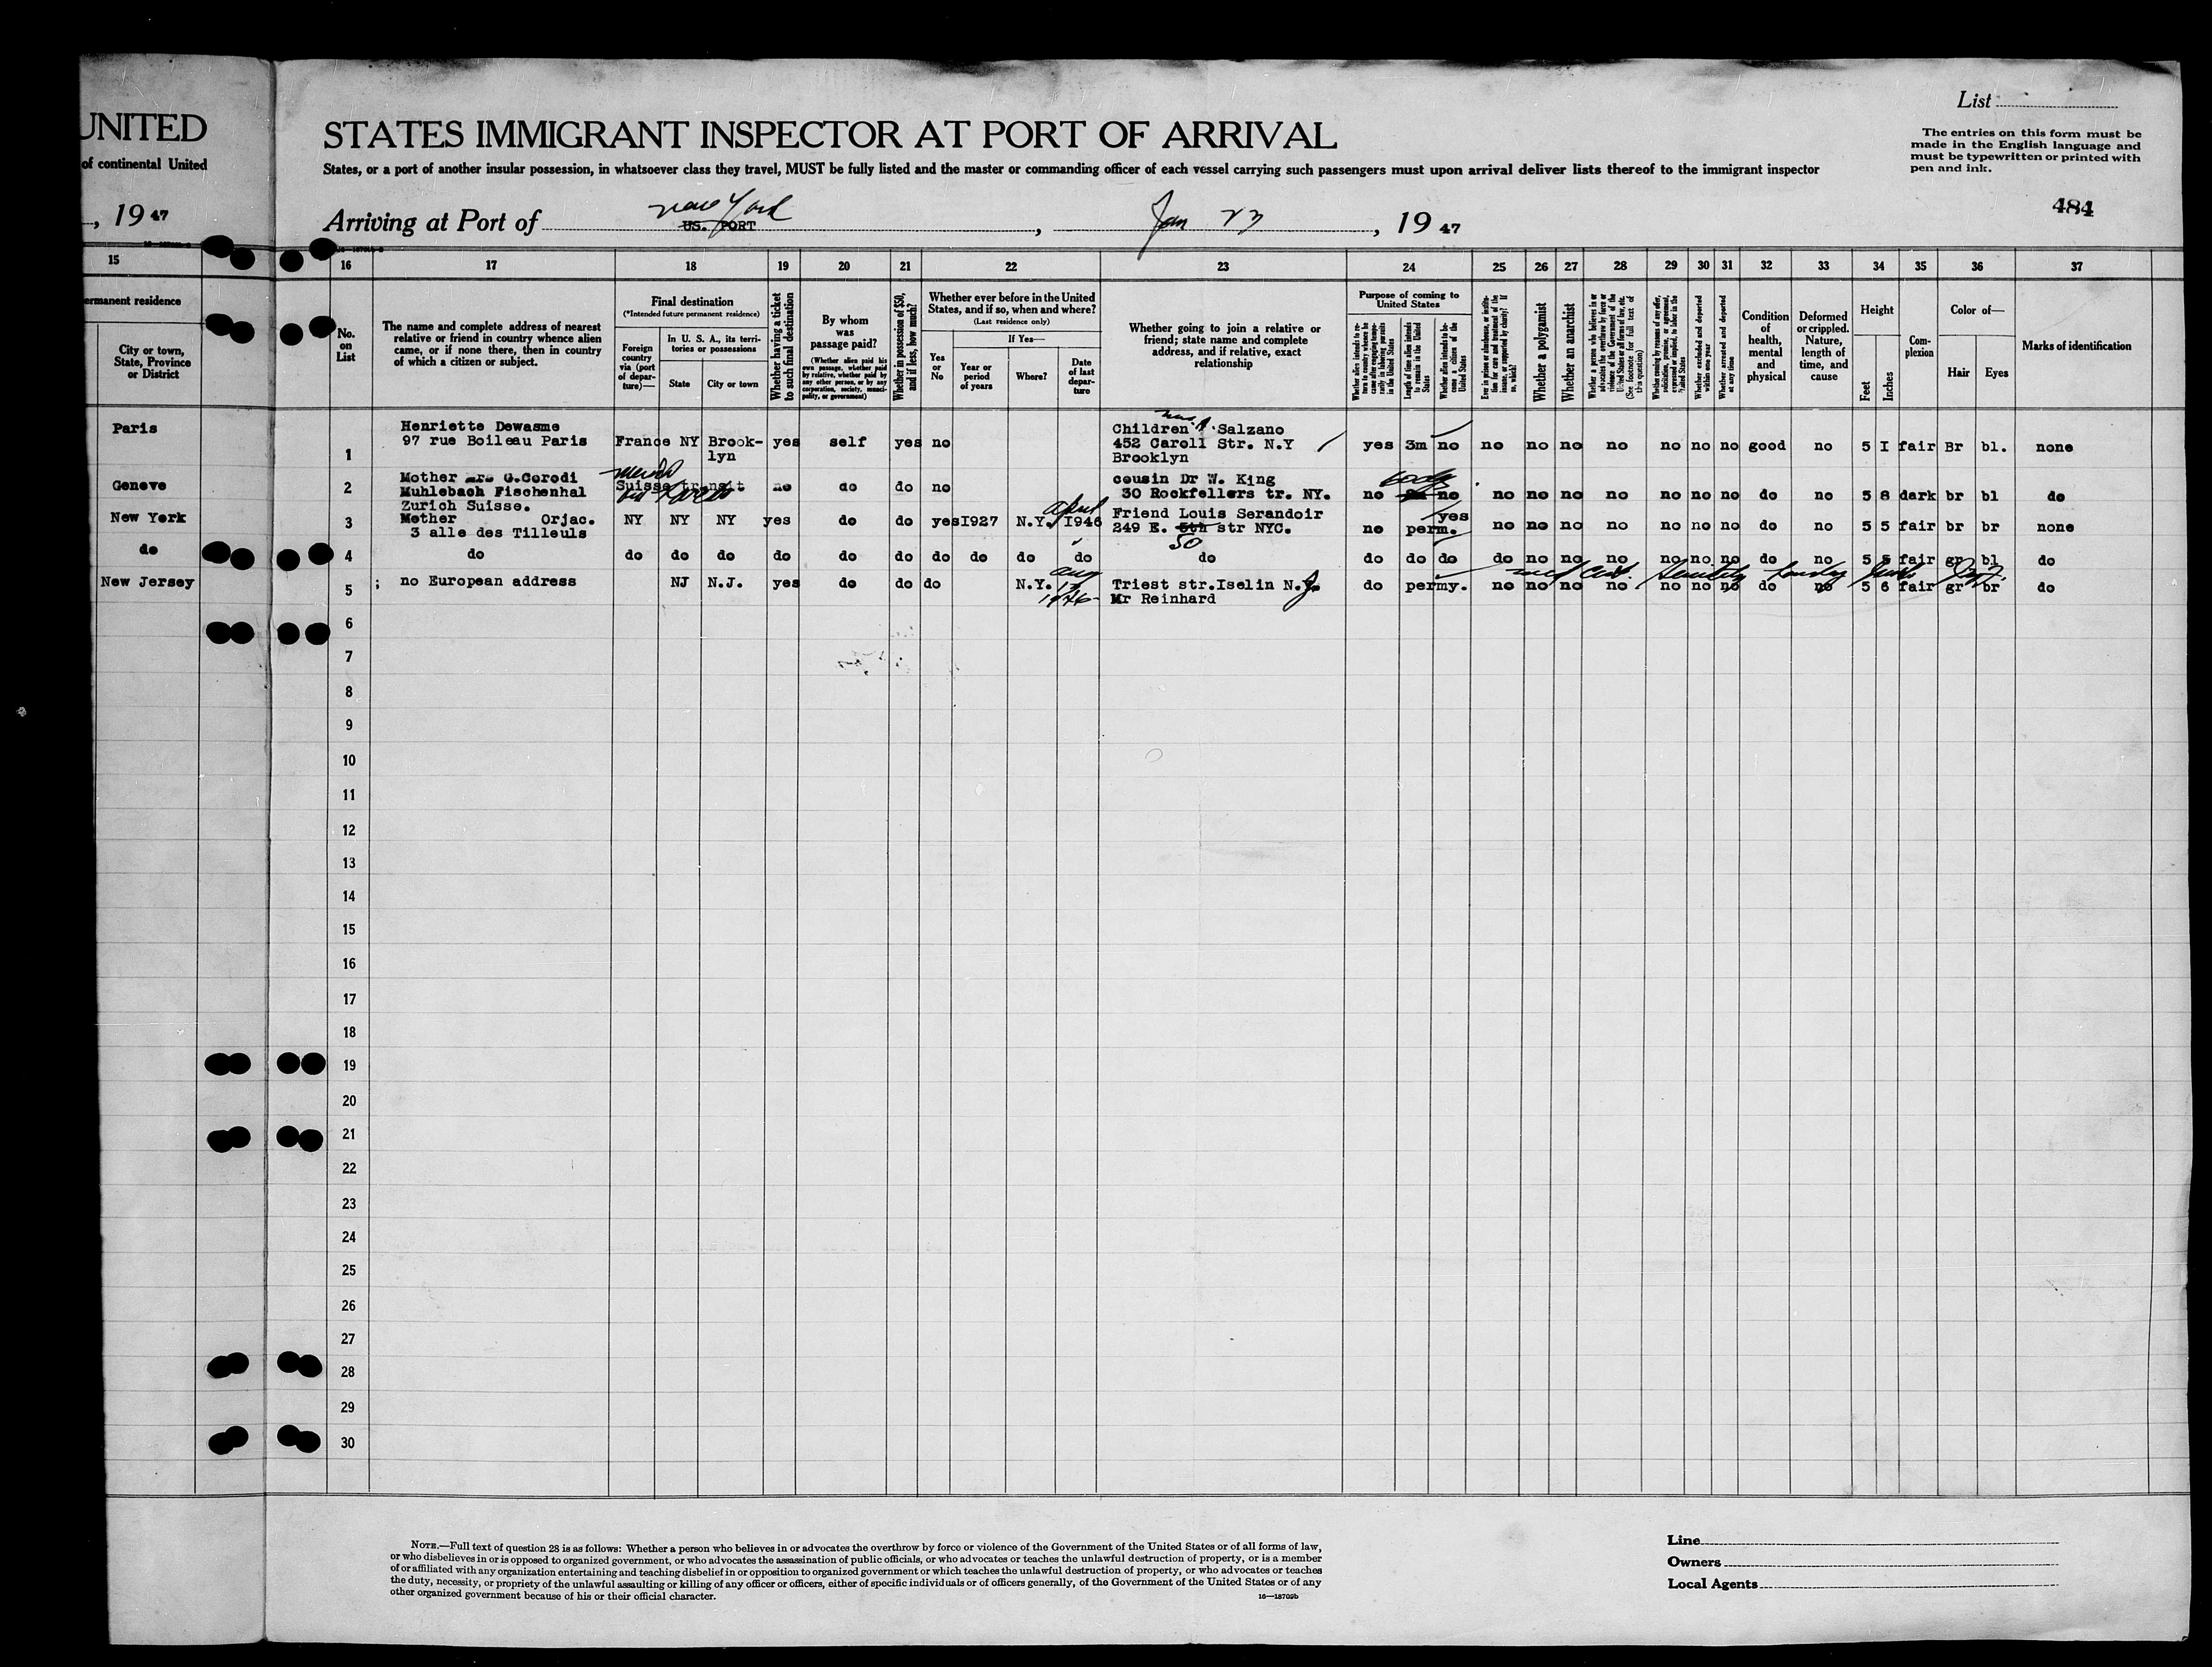 UNITED
of continental United
, 19 47
15
ermanent residence
City or town,
State, Province
or District
Paris
Geneve
New York
do
New Jersey
List
STATES IMMIGRANT INSPECTOR AT PORT OF ARRIVAL
The entries on this form must be
made in the English language and
must be typewritten or printed with
pen and ink.
States, or a port of another insular possession, in whatsoever class they travel, MUST be fully listed and the master or commanding officer of each vessel carrying such passengers must upon arrival deliver lists thereof to the immigrant inspector
484
Arriving at Port of New York US. PORT , Jan 23 , 19 47
16 17 18 19 20 21 22 23 24 25 26 27 28 29 30 31 32 33 34 35 36 37
No.
on
List
The name and complete address of nearest
relative or friend in country whence alien
came, or if none there, then in country
of which a citizen or subject.
Final destination
(*Intended future permanent residence)
Foreign
country
via (port
of depar-
ture)—
In U. S. A., its terri-
tories or possessions
State
City or town
Whether having a ticket
to such final destination
By whom
was
passage paid?
(Whether alien paid his
own passage, whether paid
by relative, whether paid by
any other person, or by any
corporation, society, munici-
pality, or government)
Whether in possession of $50,
and if less, how much?
Whether ever before in the United
States, and if so, when and where?
(Last residence only)
Yes
or
No
If Yes—
Year or
period
of years
Where?
Date
of last
depar-
ture
Whether going to join a relative or
friend; state name and complete
address, and if relative, exact
relationship
Purpose of coming to
United States
Whether alien intends to re-
turn to country whence he
came after engaging tempo-
rarily in laboring pursuits
in the United States
Length of time alien intends
to remain in the United
States
Whether alien intends to be-
come a citizen of the
United States
Ever in prison or almshouse, or institu-
tion for care and treatment of the
insane, or supported by charity? If
so, which?
Whether a polygamist
Whether an anarchist
Whether a person who believes in or
advocates the overthrow by force or
violence of the Government of the
United States or all forms of law, etc.
(See footnote for full text of
this question)
Whether coming by reasons of any offer,
solicitation, promise, or agreement,
expressed or implied, to labor in the
United States
Whether excluded and deported
within one year
Whether arrested and deported
at any time
Condition
of
health,
mental
and
physical
Deformed
or crippled.
Nature,
length of
time, and
cause
Height
Feet
Inches
Com-
plexion
Color of—
Hair
Eyes
Marks of identification
1 Henriette Dewasme
97 rue Boileau Paris France NY Brook-
lyn yes self yes no Children Salzano
452 Caroll Str. N.Y
Brooklyn yes 3m no no no no no no no no good no 5 I fair Br bl. none
2 Mother Mrs G.Corodi
Muhlebach Fischenhal
Zurich Suisse. Suisse transit no do do no cousin Dr W. King
30 Rockfellers tr. NY. no no no no no no no no no do no 5 8 dark br bl do
3 Mother Orjac.
3 alle des Tilleuls NY NY NY yes do do yes I927 N.Y. April I946 Friend Louis Serandoir
249 E. 5th 50 str NYC. no perm. yes no no no no no no no do no 5 5 fair br br none
4 do do do do do do do do do do do do do do do do no no no no no no do no 5 5 fair gr bl do
5 no European address NJ N.J. yes do do do N.Y. aug 17 1946 Triest str.Iselin N.J.
Mr Reinhard do permy. no no no no no no no do no 5 6 fair gr br do
6
7
8
9
10
11
12
13
14
15
16
17
18
19
20
21
22
23
24
25
26
27
28
29
30
NOTE.—Full text of question 28 is as follows: Whether a person who believes in or advocates the overthrow by force or violence of the Government of the United States or of all forms of law,
or who disbelieves in or is opposed to organized government, or who advocates the assassination of public officials, or who advocates or teaches the unlawful destruction of property, or is a member
of or affiliated with any organization entertaining and teaching disbelief in or opposition to organized government or which teaches the unlawful destruction of property, or who advocates or teaches
the duty, necessity, or propriety of the unlawful assaulting or killing of any officer or officers, either of specific individuals or of officers generally, of the Government of the United States or of any
other organized government because of his or their official character.
16—18709b
Line
Owners
Local Agents